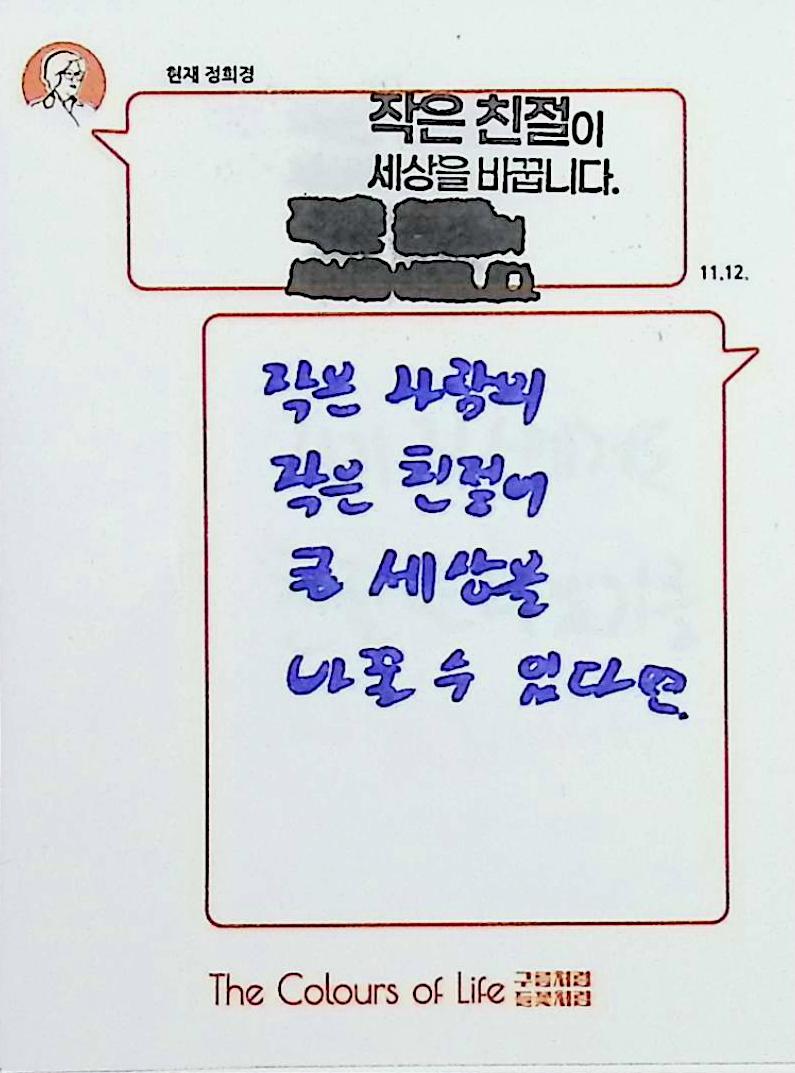 현재 정희경
작은 친절이
세상을 바꿉니다.
11.12.
작은 사람의
작은 친절이
큰 세상을
바꿀 수 있다면.
The Colours of Life 구름처럼
들꽃처럼